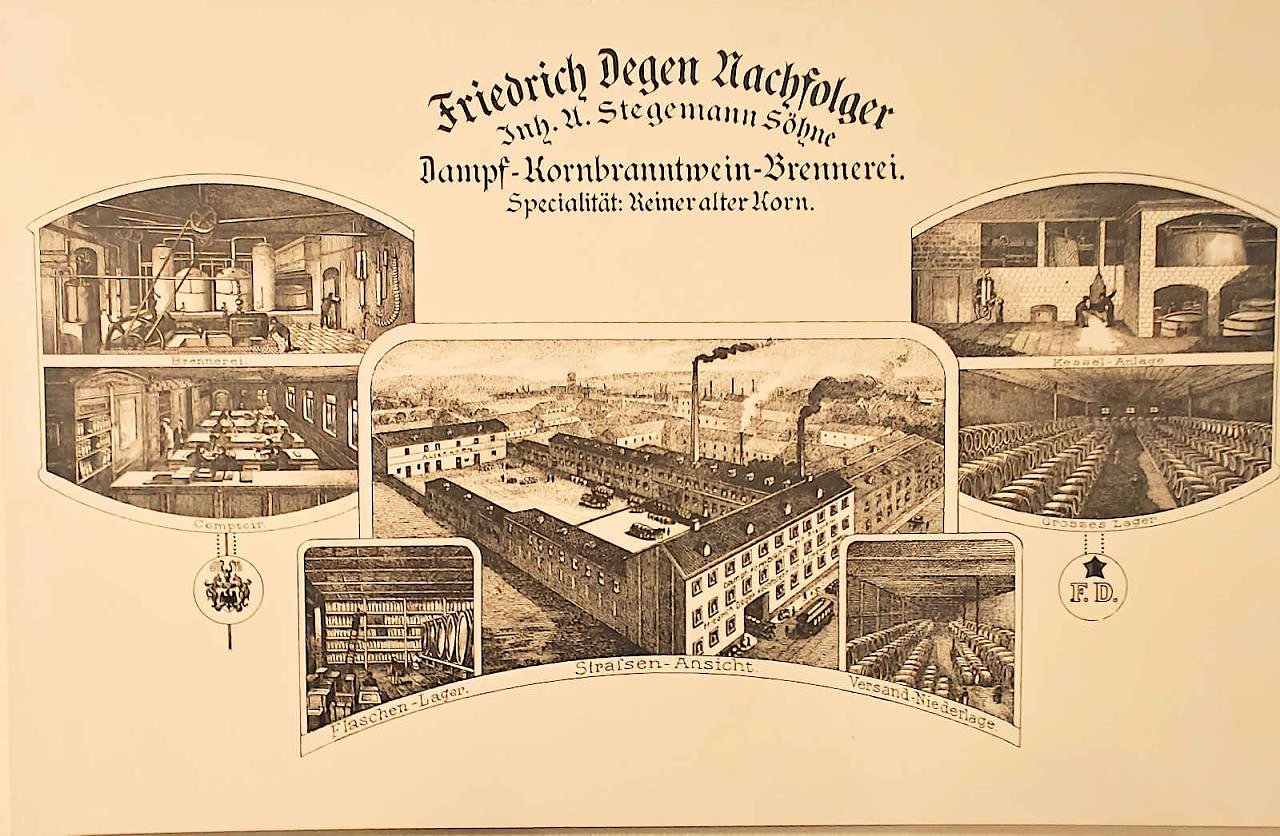 Friedrich Degen Nachfolger
Inh. A. Stegemann Söhne
Dampf-Kornbranntwein-Brennerei.
Specialität: Reiner alter Korn.
Brennerei.
Kessel-Anlage
Comptoir.
Grosses Lager
F. D.
Strafsen-Ansicht.
Flaschen-Lager.
Versand-Niederlage.